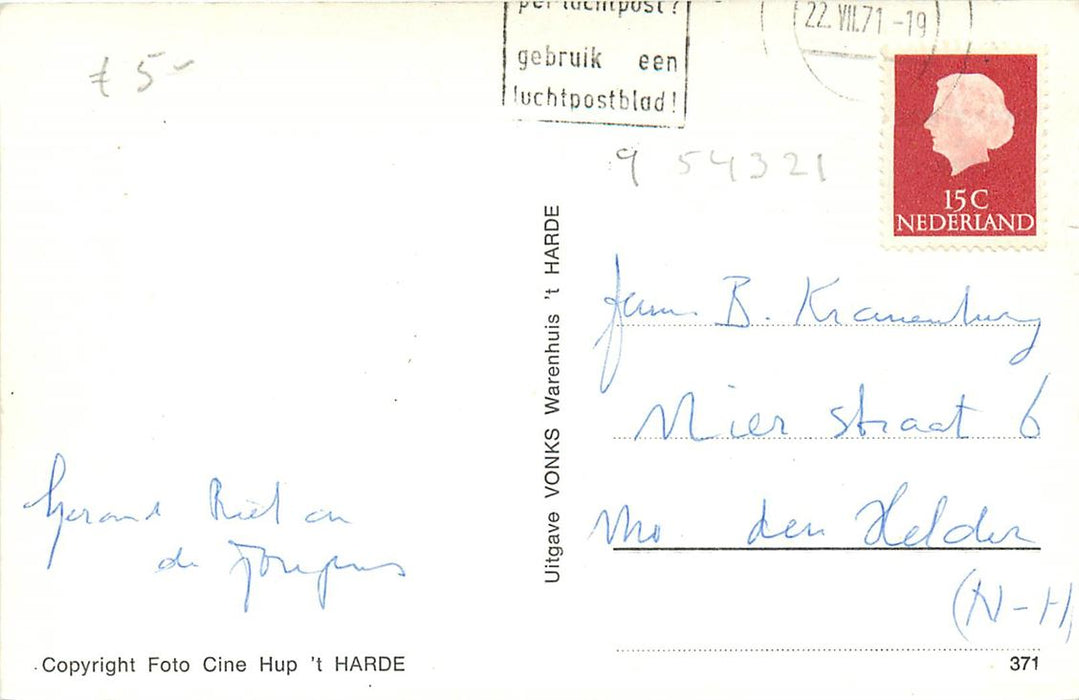 per luchtpost?
gebruik een
luchtpostblad!
22. VII. 71 - 19
15 C
NEDERLAND
5-
9 54321
Fam. B. Kranenburg
Mierstraat 6
den Helder
(N-H)
Gerard Riet en
de Jongens
Uitgave VONKS Warenhuis 't HARDE
Copyright Foto Cine Hup 't HARDE
371